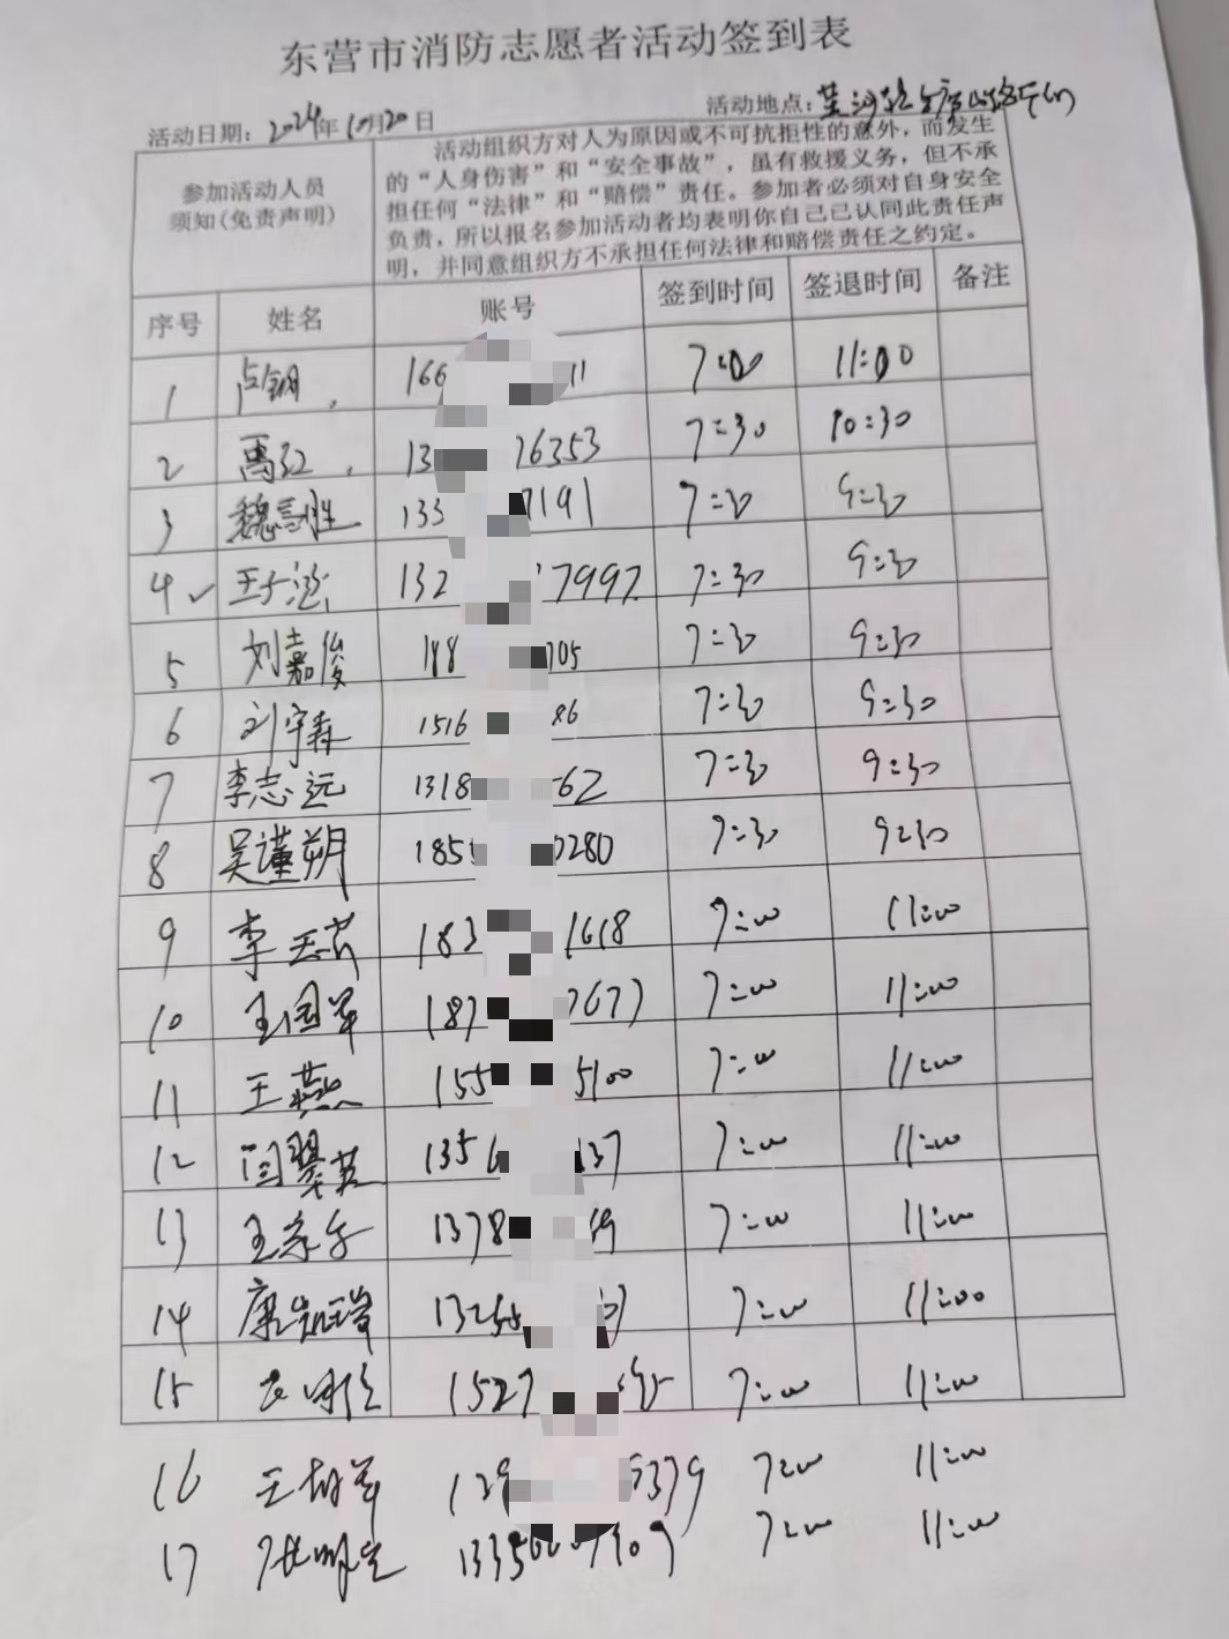 东营市消防志愿者活动签到表
活动日期：2024年10月20日 活动地点：黄河路
参加活动人员须知(免责声明)
活动组织方对人为原因或不可抗拒性的意外，而发生
的“人身伤害”和“安全事故”，虽有救援义务，但不承
担任何“法律”和“赔偿”责任。参加者必须对自身安全
负责，所以报名参加活动者均表明你自己已认同此责任声
明，并同意组织方不承担任何法律和赔偿责任之约定。
序号 姓名 账号 签到时间 签退时间 备注
1 166 11 7:00 11:00
2 禹红 13 76353 7:30 10:30
3 魏 胜 133 7191 7:30 9:30
4 王子涵 132 7997 7:30 9:30
5 刘嘉俊 188 705 7:30 9:30
6 刘宇森 1516 86 7:30 9:30
7 李志远 1318 62 7:30 9:30
8 吴谨朔 185 0280 7:30 9:30
9 李 183 1618 7:00 11:00
10 王国军 187 7677 7:00 11:00
11 王燕 155 5100 7:00 11:00
12 闫翠英 1356 137 7:00 11:00
13 王 1378 69 7:00 11:00
14 康 瑞 1325 7:00 11:00
15 1527 7:00 11:00
16 王 军 5379 7:00 11:00
17 张 1335 09 7:00 11:00